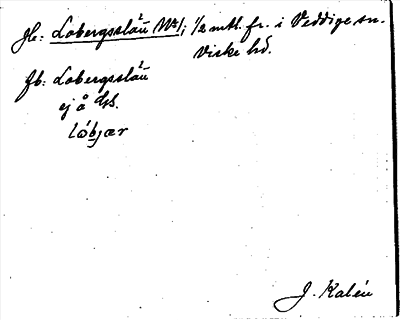 Jb: Lobergsslätt N:1; 1/2 mtl. fr. i Veddige sn.
Viske hd.
fb: Lobergsslätt
ej å Gs.
lóbjær
J. Kalén